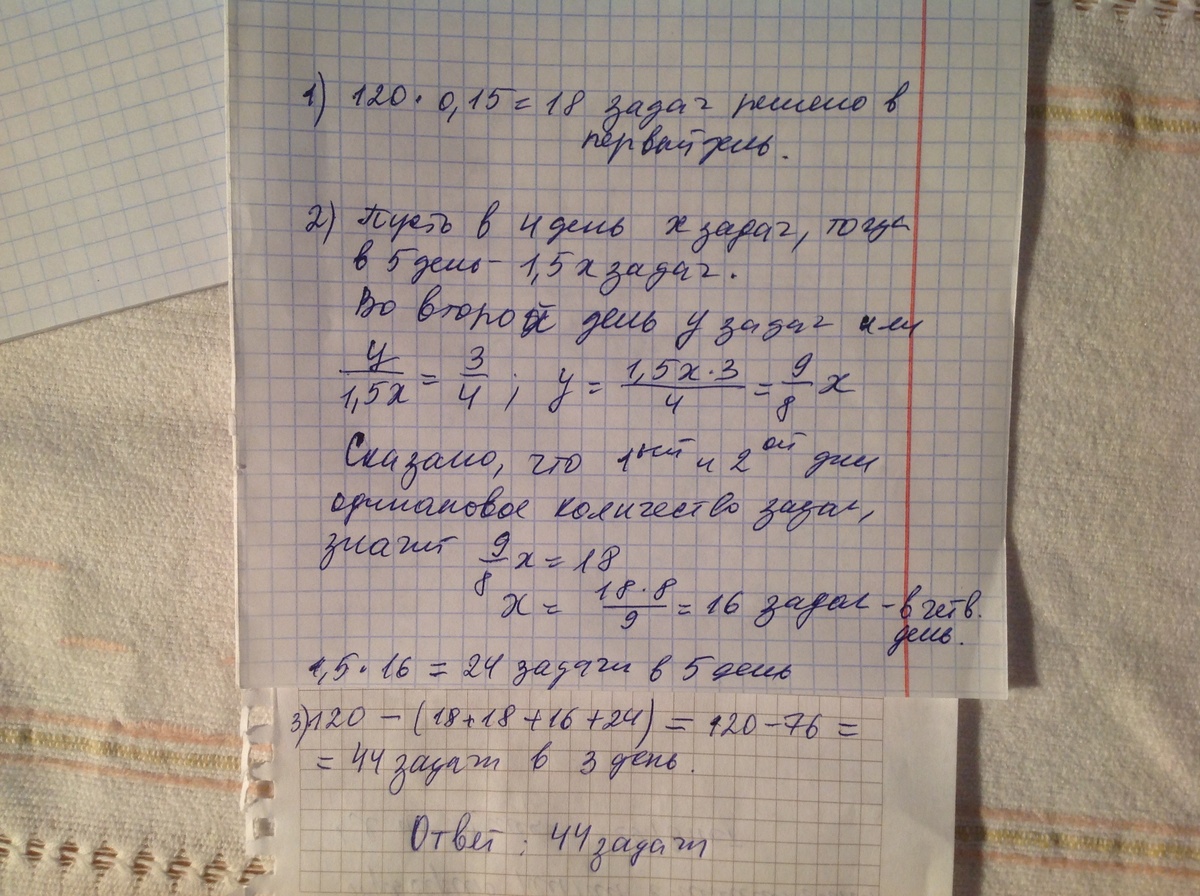 1) 120 · 0,15 = 18 задач решено в
первый день.
2) Пусть в 4 день x задач, тогда
в 5 день - 1,5x задач.
Во второй день y задач или
y/1,5x = 3/4 ; y = 1,5x · 3/4 = 9/8 x
Сказано, что 1ый и 2ой дни
одинаковое количество задач,
значит 9/8 x = 18
x = 18 · 8/9 = 16 задач - в четв.
день.
1,5 · 16 = 24 задачи в 5 день
3) 120 - (18+18+16+24) = 120-76 =
= 44 задачи в 3 день.
Ответ : 44 задачи